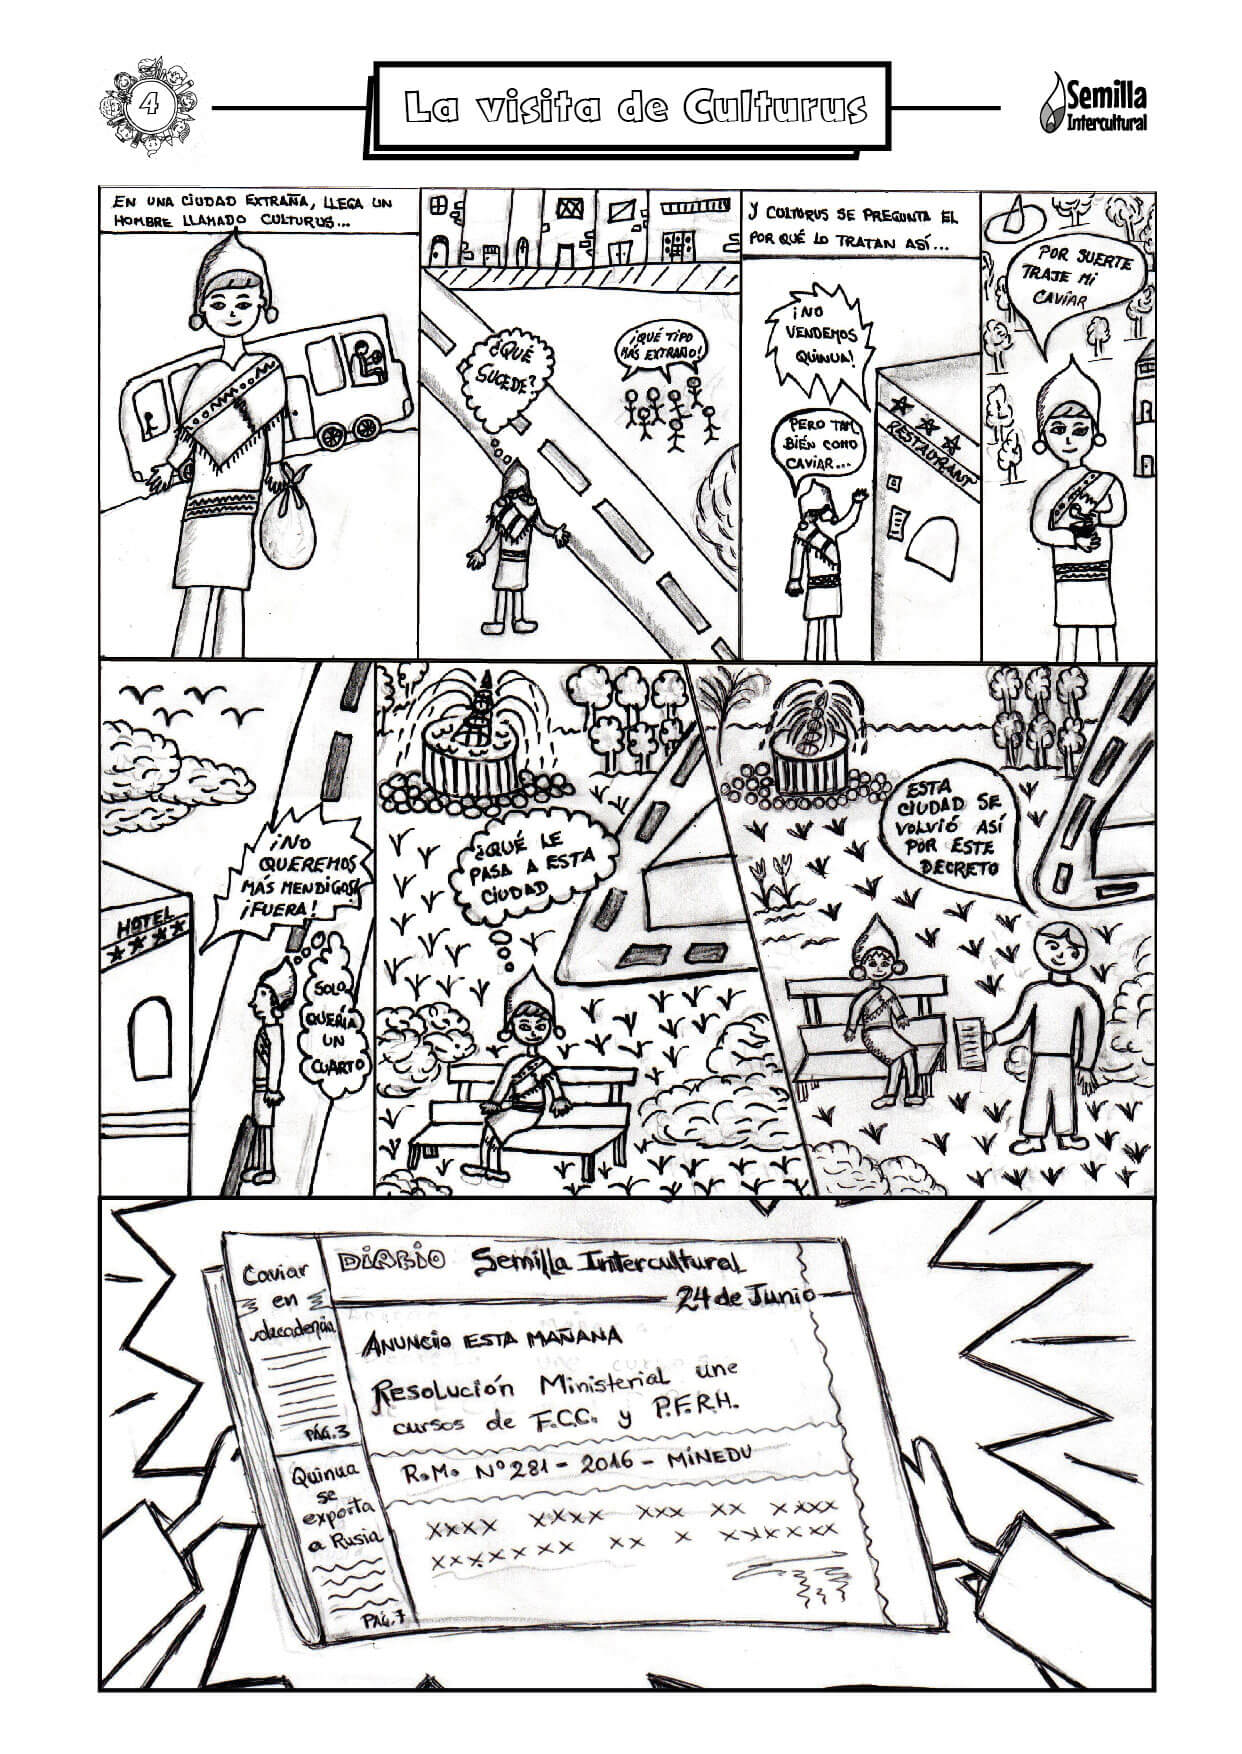 4
La visita de Culturus
Semilla
Intercultural
EN UNA CIUDAD EXTRAÑA, LLEGA UN
HOMBRE LLAMADO CULTURUS...
¿QUÉ
SUCEDE?
¡QUÉ TIPO
MÁS EXTRAÑO!
Y CULTURUS SE PREGUNTA EL
POR QUÉ LO TRATAN ASÍ...
¡NO
VENDEMOS
QUINUA!
PERO TAM
BIÉN COMO
CAVIAR...
RESTAURANT
POR SUERTE
TRAJE MI
CAVIAR
¡NO
QUEREMOS
MÁS MENDIGOS!
¡FUERA!
HOTEL
SOLO
QUERÍA
UN
CUARTO
¿QUÉ LE
PASA A ESTA
CIUDAD
ESTA
CIUDAD SE
VOLVIÓ ASÍ
POR ESTE
DECRETO
Caviar
en
decadencia
PÁG.3
Quinua
se
exporta
a Rusia
PÁG.7
DIARIO Semilla Intercultural
24 de Junio
ANUNCIO ESTA MAÑANA
Resolución Ministerial une
cursos de F.C.C. y P.F.R.H.
R.M. Nº 281 - 2016 - MINEDU
xxxx xxxx xxx xx xxxx
xxxxxxx xx x xxxxxx